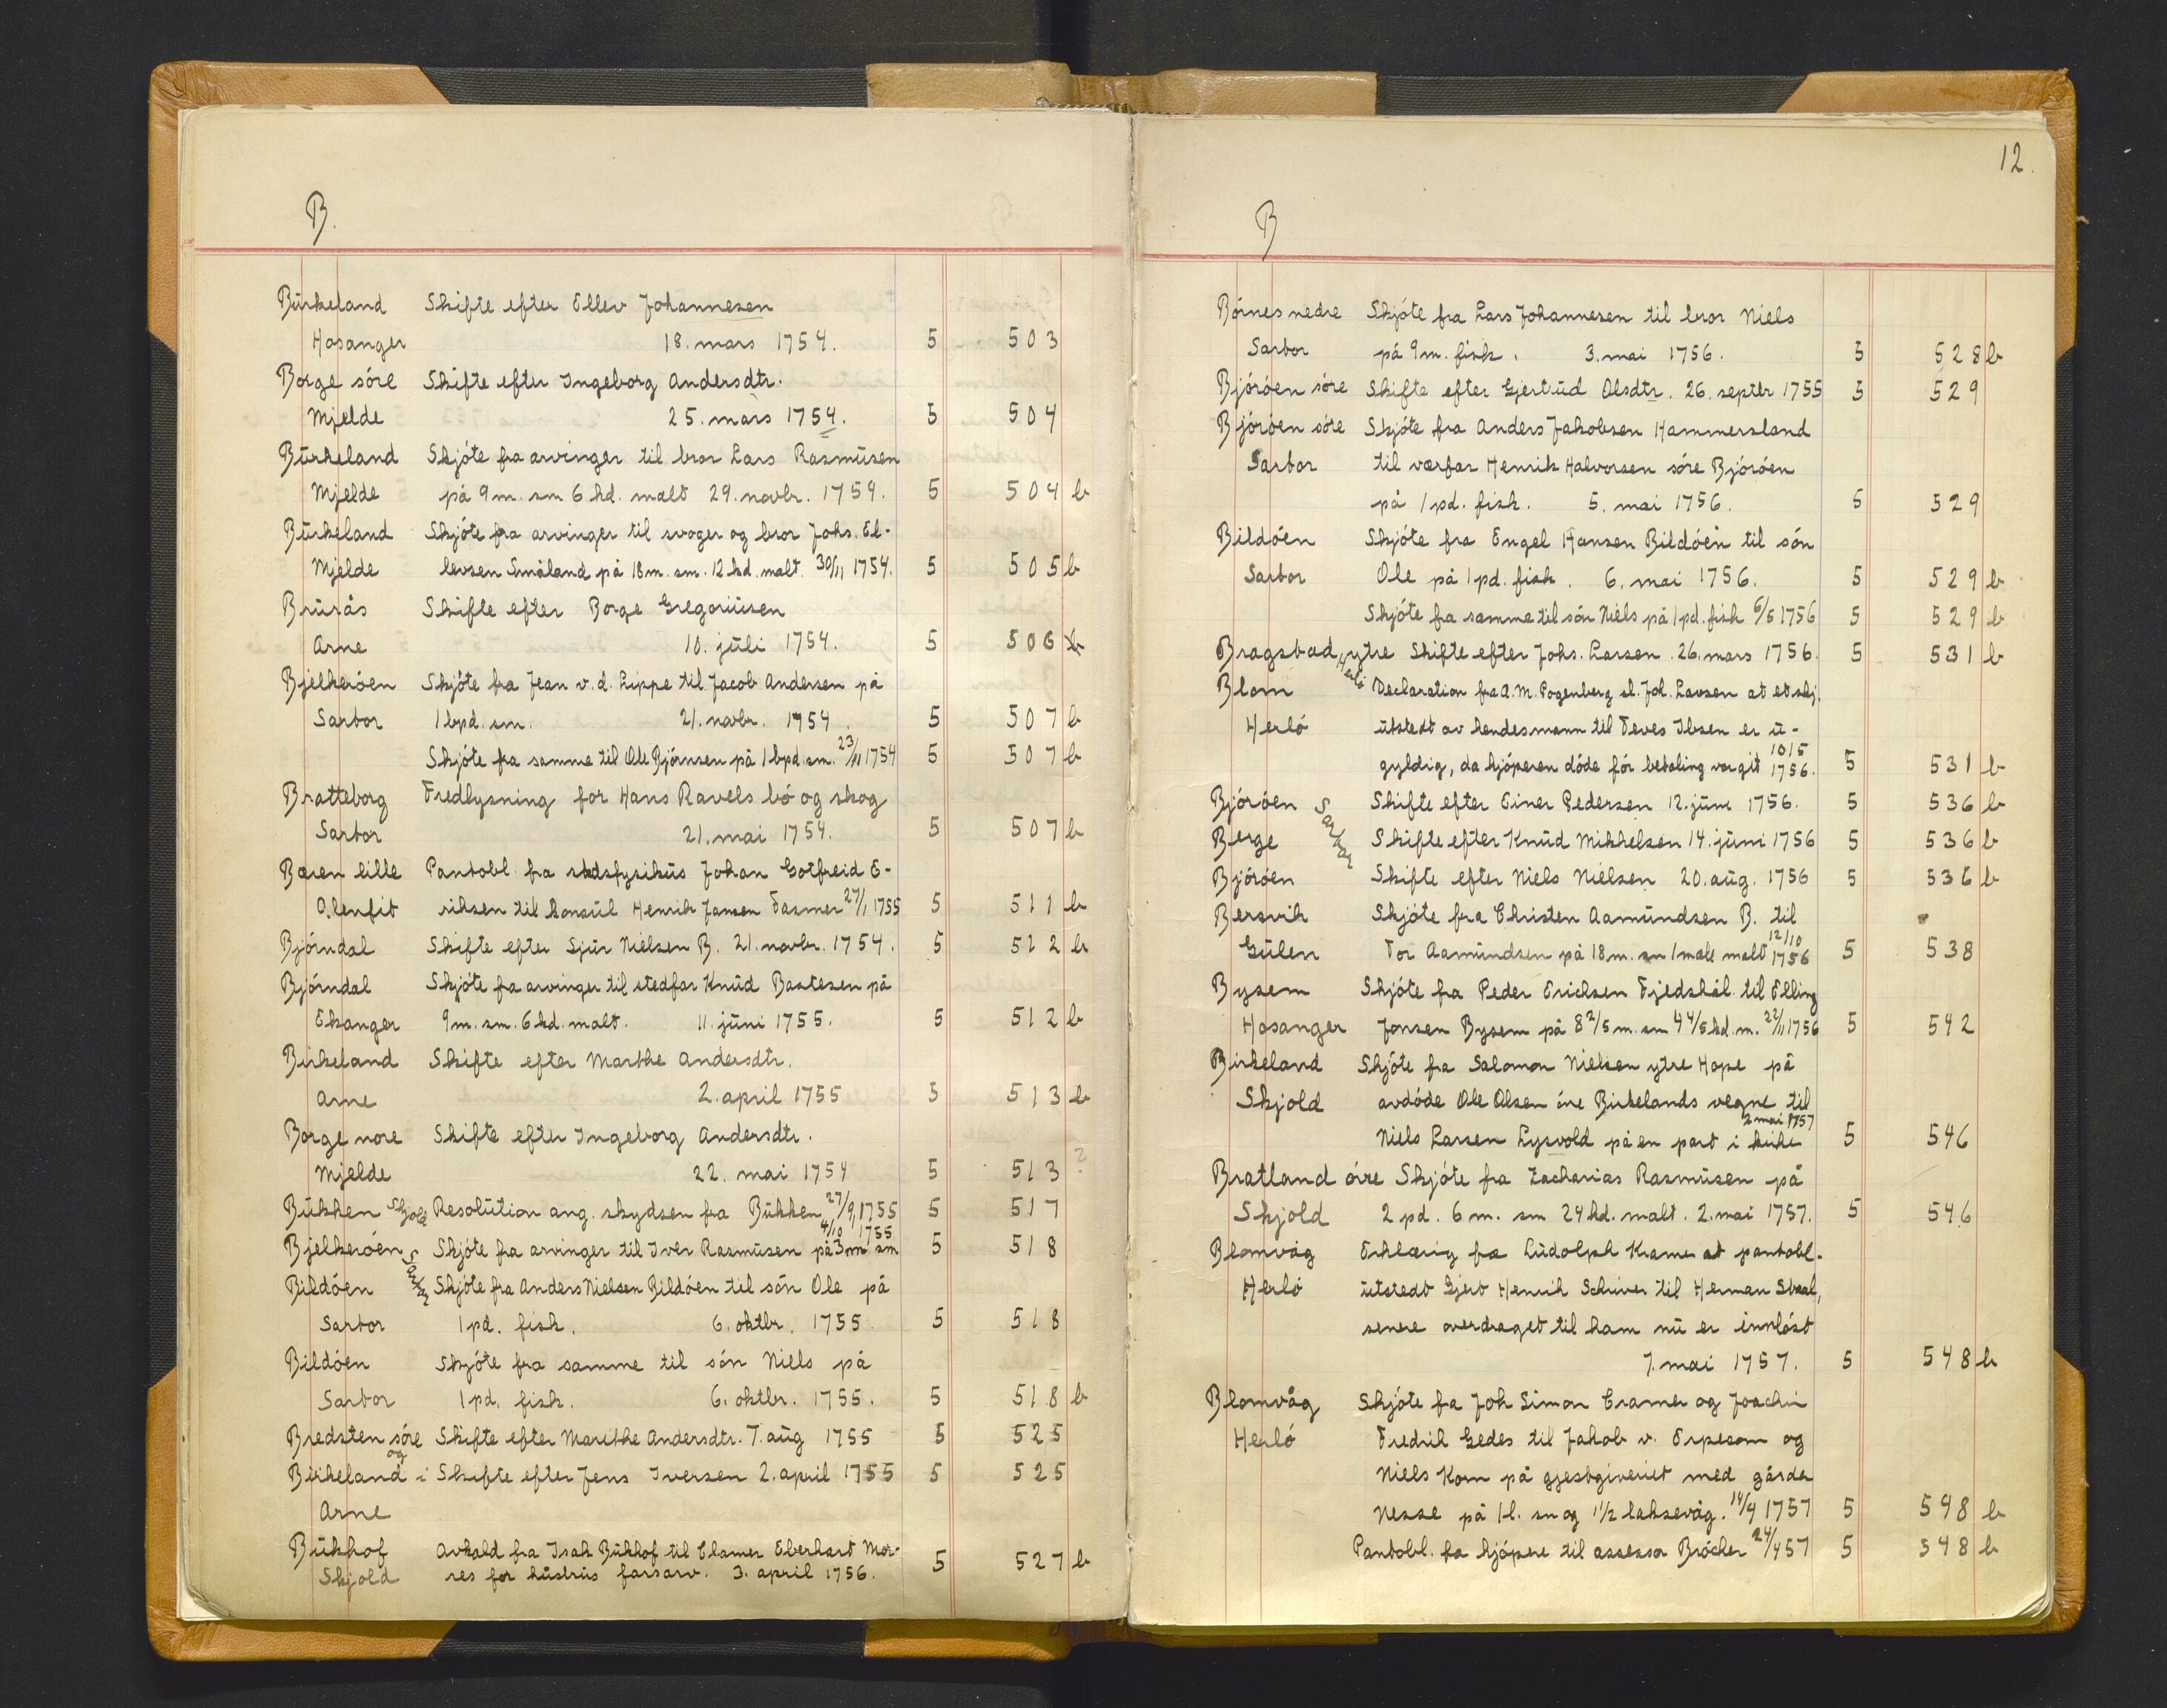 B.
Birkeland Skifte efter Ellev Johannesen
Hosanger 18. mars 1754. 5 503
Borge söre Skifte efter Ingeborg Andersdtr.
Mjelde 25. mars 1754. 5 504
Birkeland Skjöte fra arvinger til bror Lars Rasmusen
Mjelde på 9 m. sm 6 kd. malt 29. novbr. 1754. 5 504 b
Birkeland Skjöte fra arvinger til svoger og bror Johs. El-
Mjelde levsen Småland på 18 m. sm. 12 kd. malt. 30/11 1754. 5 505 b
Brurås Skifte efter Borge Gregoriusen
Arne 10. juli 1754. 5 506
Bjelkeröen Skjöte fra Jean v. d. Lippe til Jacob Andersen på
Sartor 1 bpd. sm. 21. novbr. 1754. 5 507 b
Skjöte fra samme til Ole Björnsen på 1 bpd. sm. 23/11 1754 5 507 b
Bratteborg Fredlysning for Hans Ravels bö og skog
Sartor 21. mai 1754. 5 507 b
Bæren lille Pantobl. fra stadsfysikus Johan Gotfreid E-
Alenfit riksen til konsul Henrik Jansen Fasmer 27/1 1755 5 511 b
Björndal Skifte efter Sjur Nielsen B. 21. novbr. 1754. 5 512 b
Björndal Skjöte fra arvinger til stedfar Knud Bastesen på
Ekanger 9 m. sm. 6 kd. malt. 11. juni 1755. 5 512 b
Birkeland Skifte efter Marthe Andersdtr.
Arne 2. april 1755 5 513 b
Borge nore Skifte efter Ingeborg Andersdtr.
Mjelde 22. mai 1754 5 513 ?
Bukken Skjold Resolution ang. skydsen fra Bukken 27/9 1755 5 517
Bjelkeröen Sartor Skjöte fra arvinger til Iver Rasmusen på 3 m sm 4/10 1755 5 518
Bildöen Skjöte fra Anders Nielsen Bildöen til sön Ole på
Sartor 1 pd. fisk. 6. oktbr. 1755 5 518
Bildöen Skjöte fra samme til sön Niels på
Sartor 1 pd. fisk. 6. oktbr. 1755. 5 518 b
Bredsten söre Skifte efter Marithe Andersdtr. 7. aug 1755 5 525
og
Birkeland i Skifte efter Jens Iversen 2. april 1755 5 525
Arne
Bukhof Avkald fra Isak Bukhof til Clamer Eberhart Mor-
Skjold res for hustrus farsarv. 3. april 1756. 5 527 b
12.
B
Börnes nedre Skjöte fra Lars Johannesen til bror Niels
Sartor på 9 m. fisk. 3. mai 1756. 5 528 b
Björöen söre Skifte efter Gjertrud Olsdtr. 26. septbr 1755 5 529
Björöen söre Skjöte fra Anders Jakobsen Hammersland
Sartor til værfar Henrik Halvorsen söre Björöen
på 1 pd. fisk. 5. mai 1756. 5 529
Bildöen Skjöte fra Engel Hansen Bildöen til sön
Sartor Ole på 1 pd. fisk. 6. mai 1756. 5 529 b
Skjöte fra samme til sön Niels på 1 pd. fisk 6/5 1756 5 529 b
Bragstad ytre Herlö Skifte efter Johs. Larsen. 26. mars 1756. 5 531 b
Blom Declaration fra A. M. Pogenberg sl. Joh. Lavsen at et skj.
Herlö utstedt av hendes mann til Teves Ibsen er u-
gyldig, da kjöperen döde för betaling var git 10/5 1756. 5 531 b
Björöen Sartor Skifte efter Einer Pedersen 12. juni 1756. 5 536 b
Berge Skifte efter Knud Mikkelsen 14. juni 1756 5 536 b
Björöen Skifte efter Niels Nielsen 20. aug. 1756 5 536 b
Bersvik Skjöte fra Christen Aamundsen B. til
Gulen Tor Aamundsen på 18 m. sm 1 mæle malt 12/10 1756 5 538
Bysem Skjöte fra Peder Erichsen Fjedskål til Elling
Hosanger Jonsen Bysem på 8 2/5 m. sm 4 4/5 kd. m. 22/11 1756 5 542
Birkeland Skjöte fra Salomon Nielsen ytre Hope på
Skjold avdöde Ole Olsen övre Birkelands vegne til
Niels Larsen Lysvold på en part i kirke 2 mai 1757 5 546
Bratland övre Skjöte fra Zacharias Rasmusen på
Skjold 2 pd. 6 m. sm 24 kd. malt. 2. mai 1757. 5 546
Blomvåg Erklæring fra Ludolph Kramer at pantobl.
Herlö utstedt Gjert Henrik Schriver til Herman Stral,
senere overdraget til ham nu er innlöst
7. mai 1757. 5 548 b
Blomvåg Skjöte fra Joh Simon Cramer og Joachin
Herlö Fredrik Gedes til Jakob v. Erpecom og
Niels Korn på gjestgiveriet med gården
Nesse på 1 l. sm og 1 1/2 laksevåg. 14/4 1757 5 548 b
Pantobl. fra kjöpere til assessor Bröcher 24/4 57 5 548 b